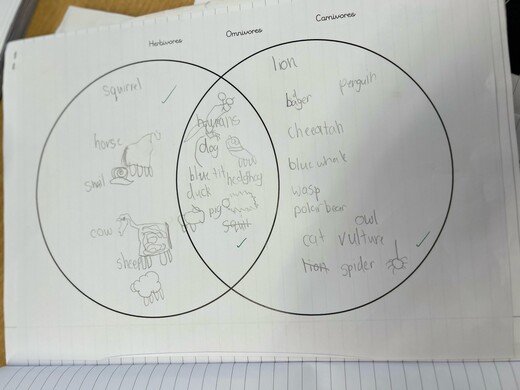 Herbivores
Omnivores
Carnivores
squirrel
horse
snail
cow
sheep
humans
dog
blue tit
hedgehog
duck
pig
squir
lion
penguin
bager
cheeatah
blue whale
wasp
polar bear
owl
cat
vulture
lion
spider